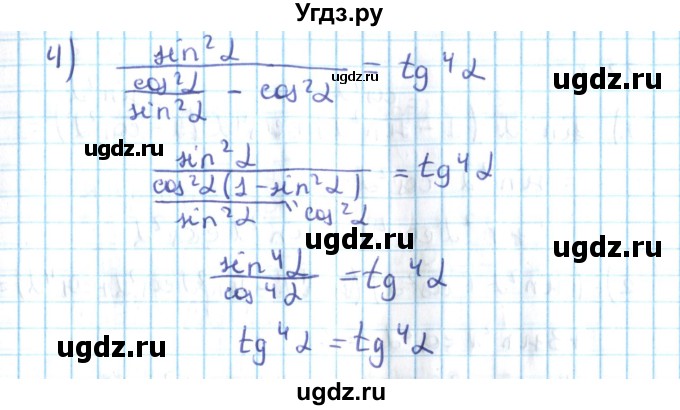 Угдз.ру
4) sin²α / (cos²α / sin²α - cos²α) = tg⁴α
ugdz.ru ugdz.ru
ugdz.ru
sin²α / (cos²α(1-sin²α) / sin²α) = tg⁴α
cos²α
ugdz.ru ugdz.ru
sin⁴α / cos⁴α = tg⁴α
tg⁴α = tg⁴α
ugdz.ru ugdz.ru
ugdz.ru